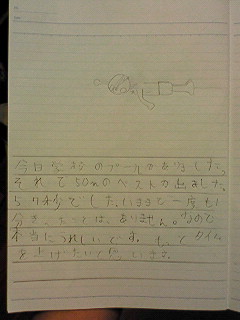 今日公本のプールがありました。
それで50mのベストが出ました。
57秒でした。いままで一度も1
分をきったことは、ありません。なので
本当にうれしいです。もっとタイム
を上げたいと思います。